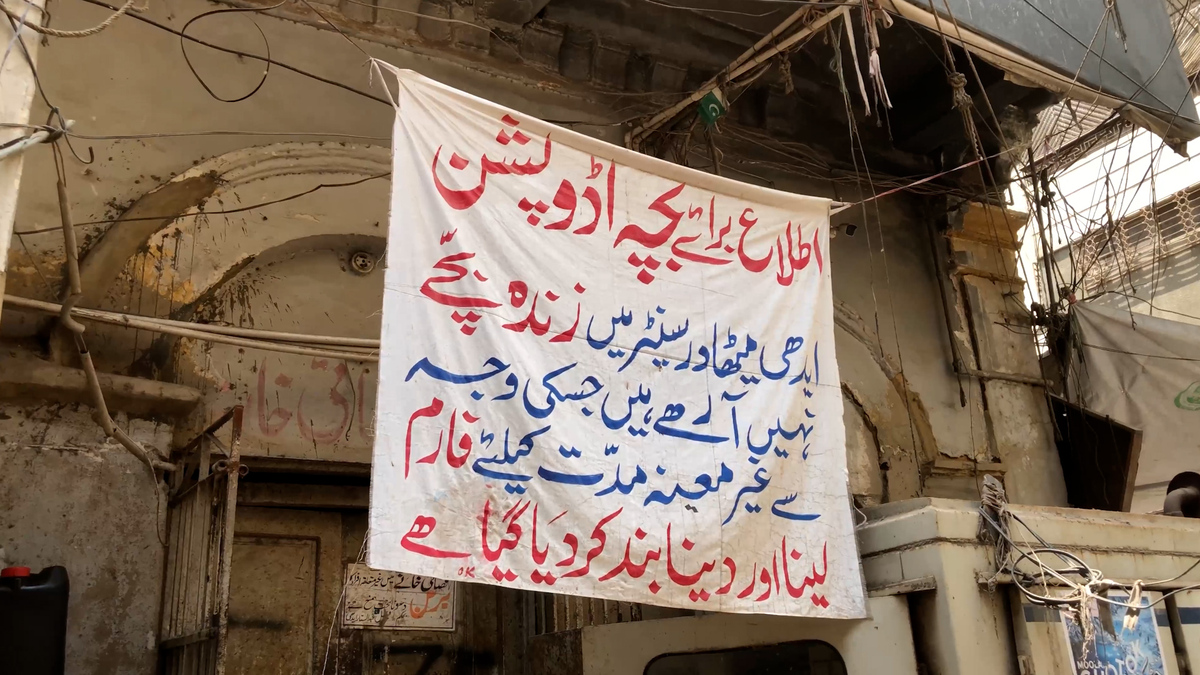 اطلاع برائے بچہ اڈوپشن
ایدھی میٹھادر سینٹر میں زندہ بچّے
نہیں آرہے ہیں جسکی وجہ
سے غیر معینہ مدّت کیلئے فارم
لینا اور دینا بند کر دیا گیا ہے